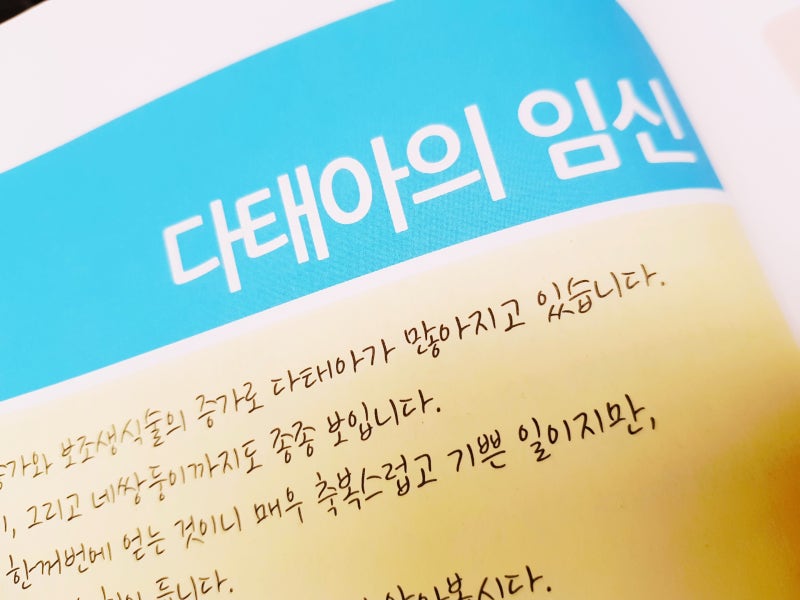 다태아의 임신
증가와 보조생식술의 증가로 다태아가 많아지고 있습니다.
그리고 네쌍둥이까지도 종종 보입니다.
한꺼번에 얻는 것이니 매우 축복스럽고 기쁜 일이지만,
듭니다.